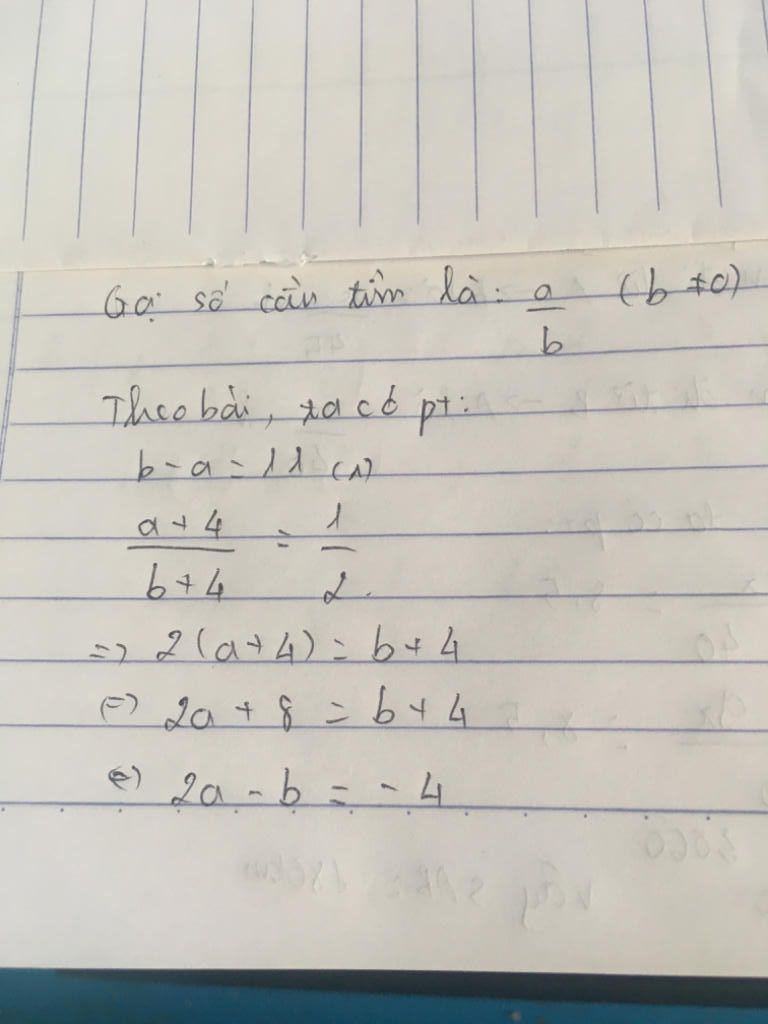 Gọi số cần tìm là: a/b (b ≠ 0)
Theo bài, ta có pt:
b - a = 11 (1)
(a + 4)/(b + 4) = 1/2.
=> 2(a + 4) = b + 4
(=) 2a + 8 = b + 4
(=) 2a - b = - 4